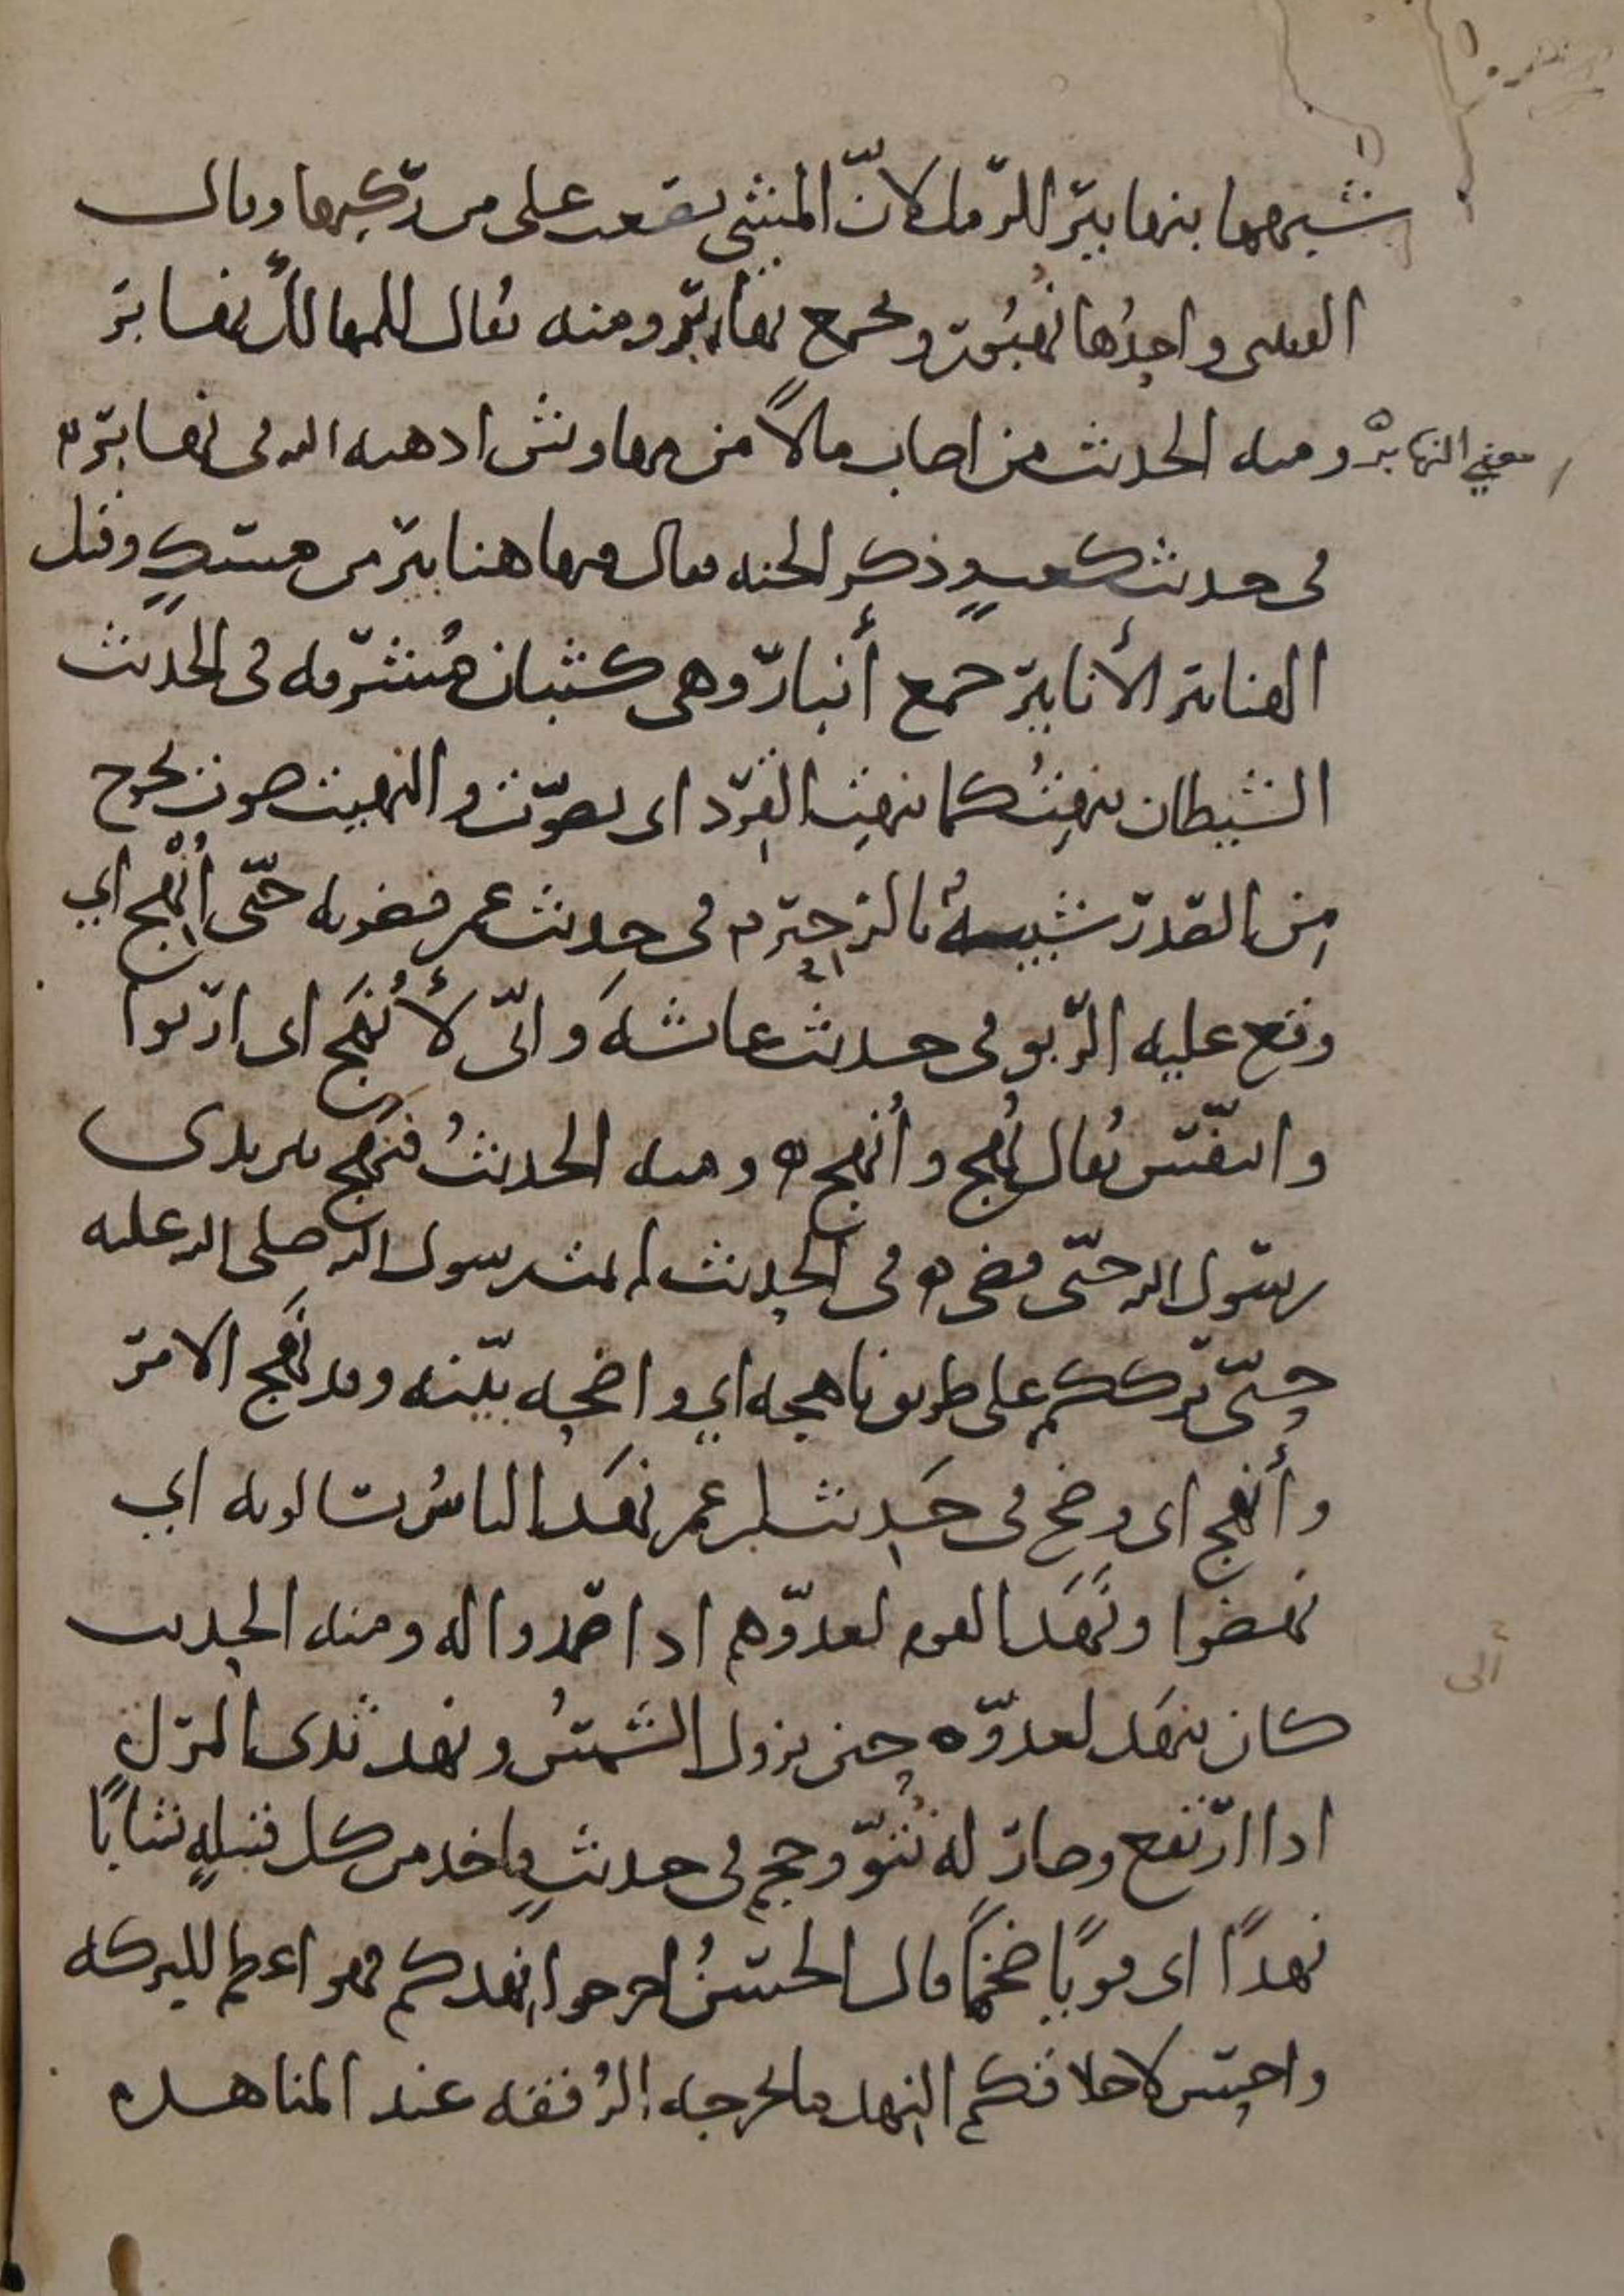 شبهها بنهابير الرمل لانّ المشي يصعب على من ركبها وقال
القتبى واحدُها نُهبُورٌ ويجمع نهابير ومنه يُقال للمهالك نهابر
ومنه الحديث من اصاب مالاً من مهاوش اذهبه الله في نهابر
معنى النهابر
في حديث كعبٍ وذكر الجنه فقال فيها هنابير من مسكٍ وقيل
الهنابير الأنابير جمع أنبار وهى كثبان مُشرفه في الحديث
الشيطان ينهِتُ كما ينهِت القِرد اى يصوّت والنهيت صوت يخرج
من الصدر شبيهٌ بالزحير في حديث عمر فضربه حتّى أُنْهِج اي
وقع عليه الرّبو في حديث عائشهَ وانّى لأُنْهَج اى اربوا
واتنفّس يُقال نُهِج وأُنهج ومنه الحديثُ فنُهِج بين يدى
رسول الله حتّى قضى في الحديث لم يمت رسول الله صلى الله عليه
حتّى ترككم على طريق ناهجه اي واضحه بيّنه وقد نَهَج الامر
وأنهج اى وضح في حَديث ابن عمر نَهَد الناسُ يسالونه اي
نهضوا ونَهَد القوم لعدوّهم اذا صَمدوا له ومنه الحديث
كان ينهَد لعدوّه حين يزول الشمسُ ونهد ثدى المراه
اذا ارتفع وصار له نُتوّ وحجم في حديثٍ ياخذ من كل قبيلهٍ شابًا
نهدًا اى قويًا ضخمًا قال الحسنُ اخرجوا نِهدكم فهو اعظم للبركه
واحسن لاخلاقكم النِهد ما يخرجه الرُفقه عند المناهده
ألى